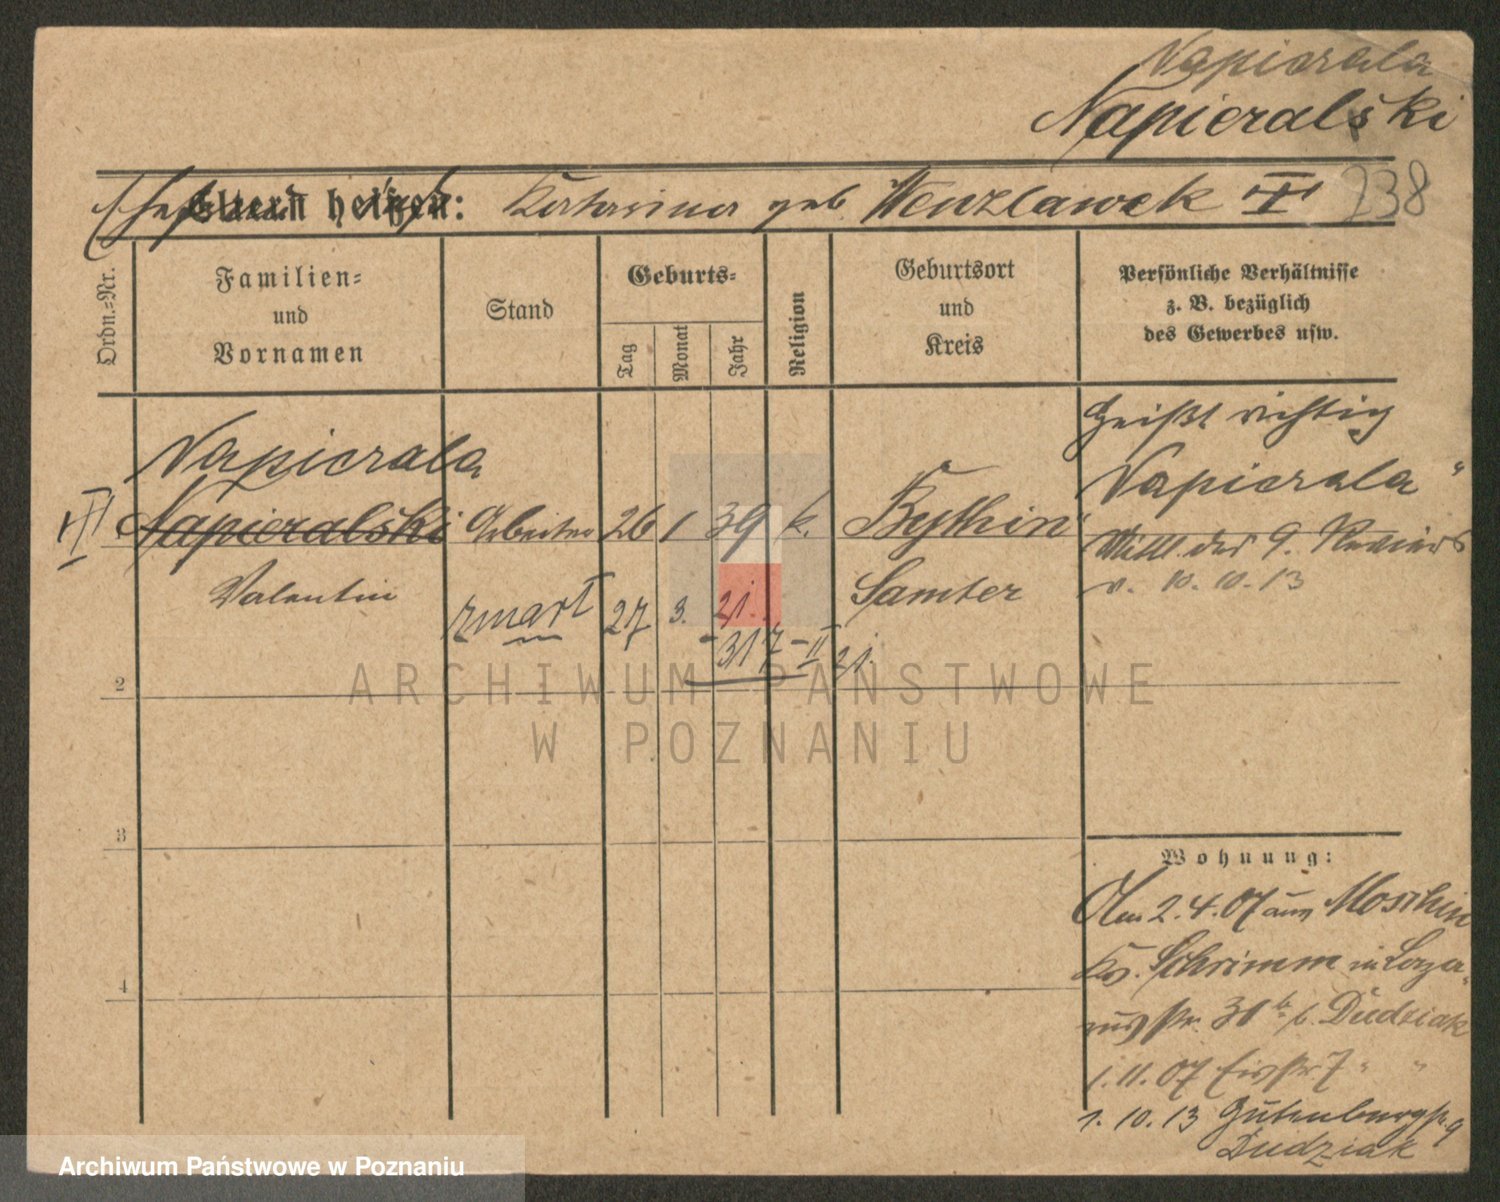 Napierala
Napieralski
Eltern heißen: Katarina geb. Wenzlawek III 238
Ordn.-Nr.
Familien-
und
Vornamen
Stand
Geburts-
Tag
Monat
Jahr
Religion
Geburtsort
und
Kreis
Persönliche Verhältnisse
z. B. bezüglich
des Gewerbes usw.
Heißt richtig
Napierala
"Napierala"
III Napieralski Arbeiter 26 1 39 k. Bythin
Mittl. des 9. Reviers
v. 10. 10. 13
Valentin
Samter
zmarł 27 3. 21.
-317-II 21.
2
3
4
Wohnung:
Am 2.4.07 aus Moschin
Kr. Schrimm in Laza-
russtr. 30b b. Dudziak
1.11.07 Eisstr 7 " "
1. 10. 13 Gutenbergstr. 9
Dudziak
ARCHIWUM PAŃSTWOWE
W POZNANIU
Archiwum Państwowe w Poznaniu